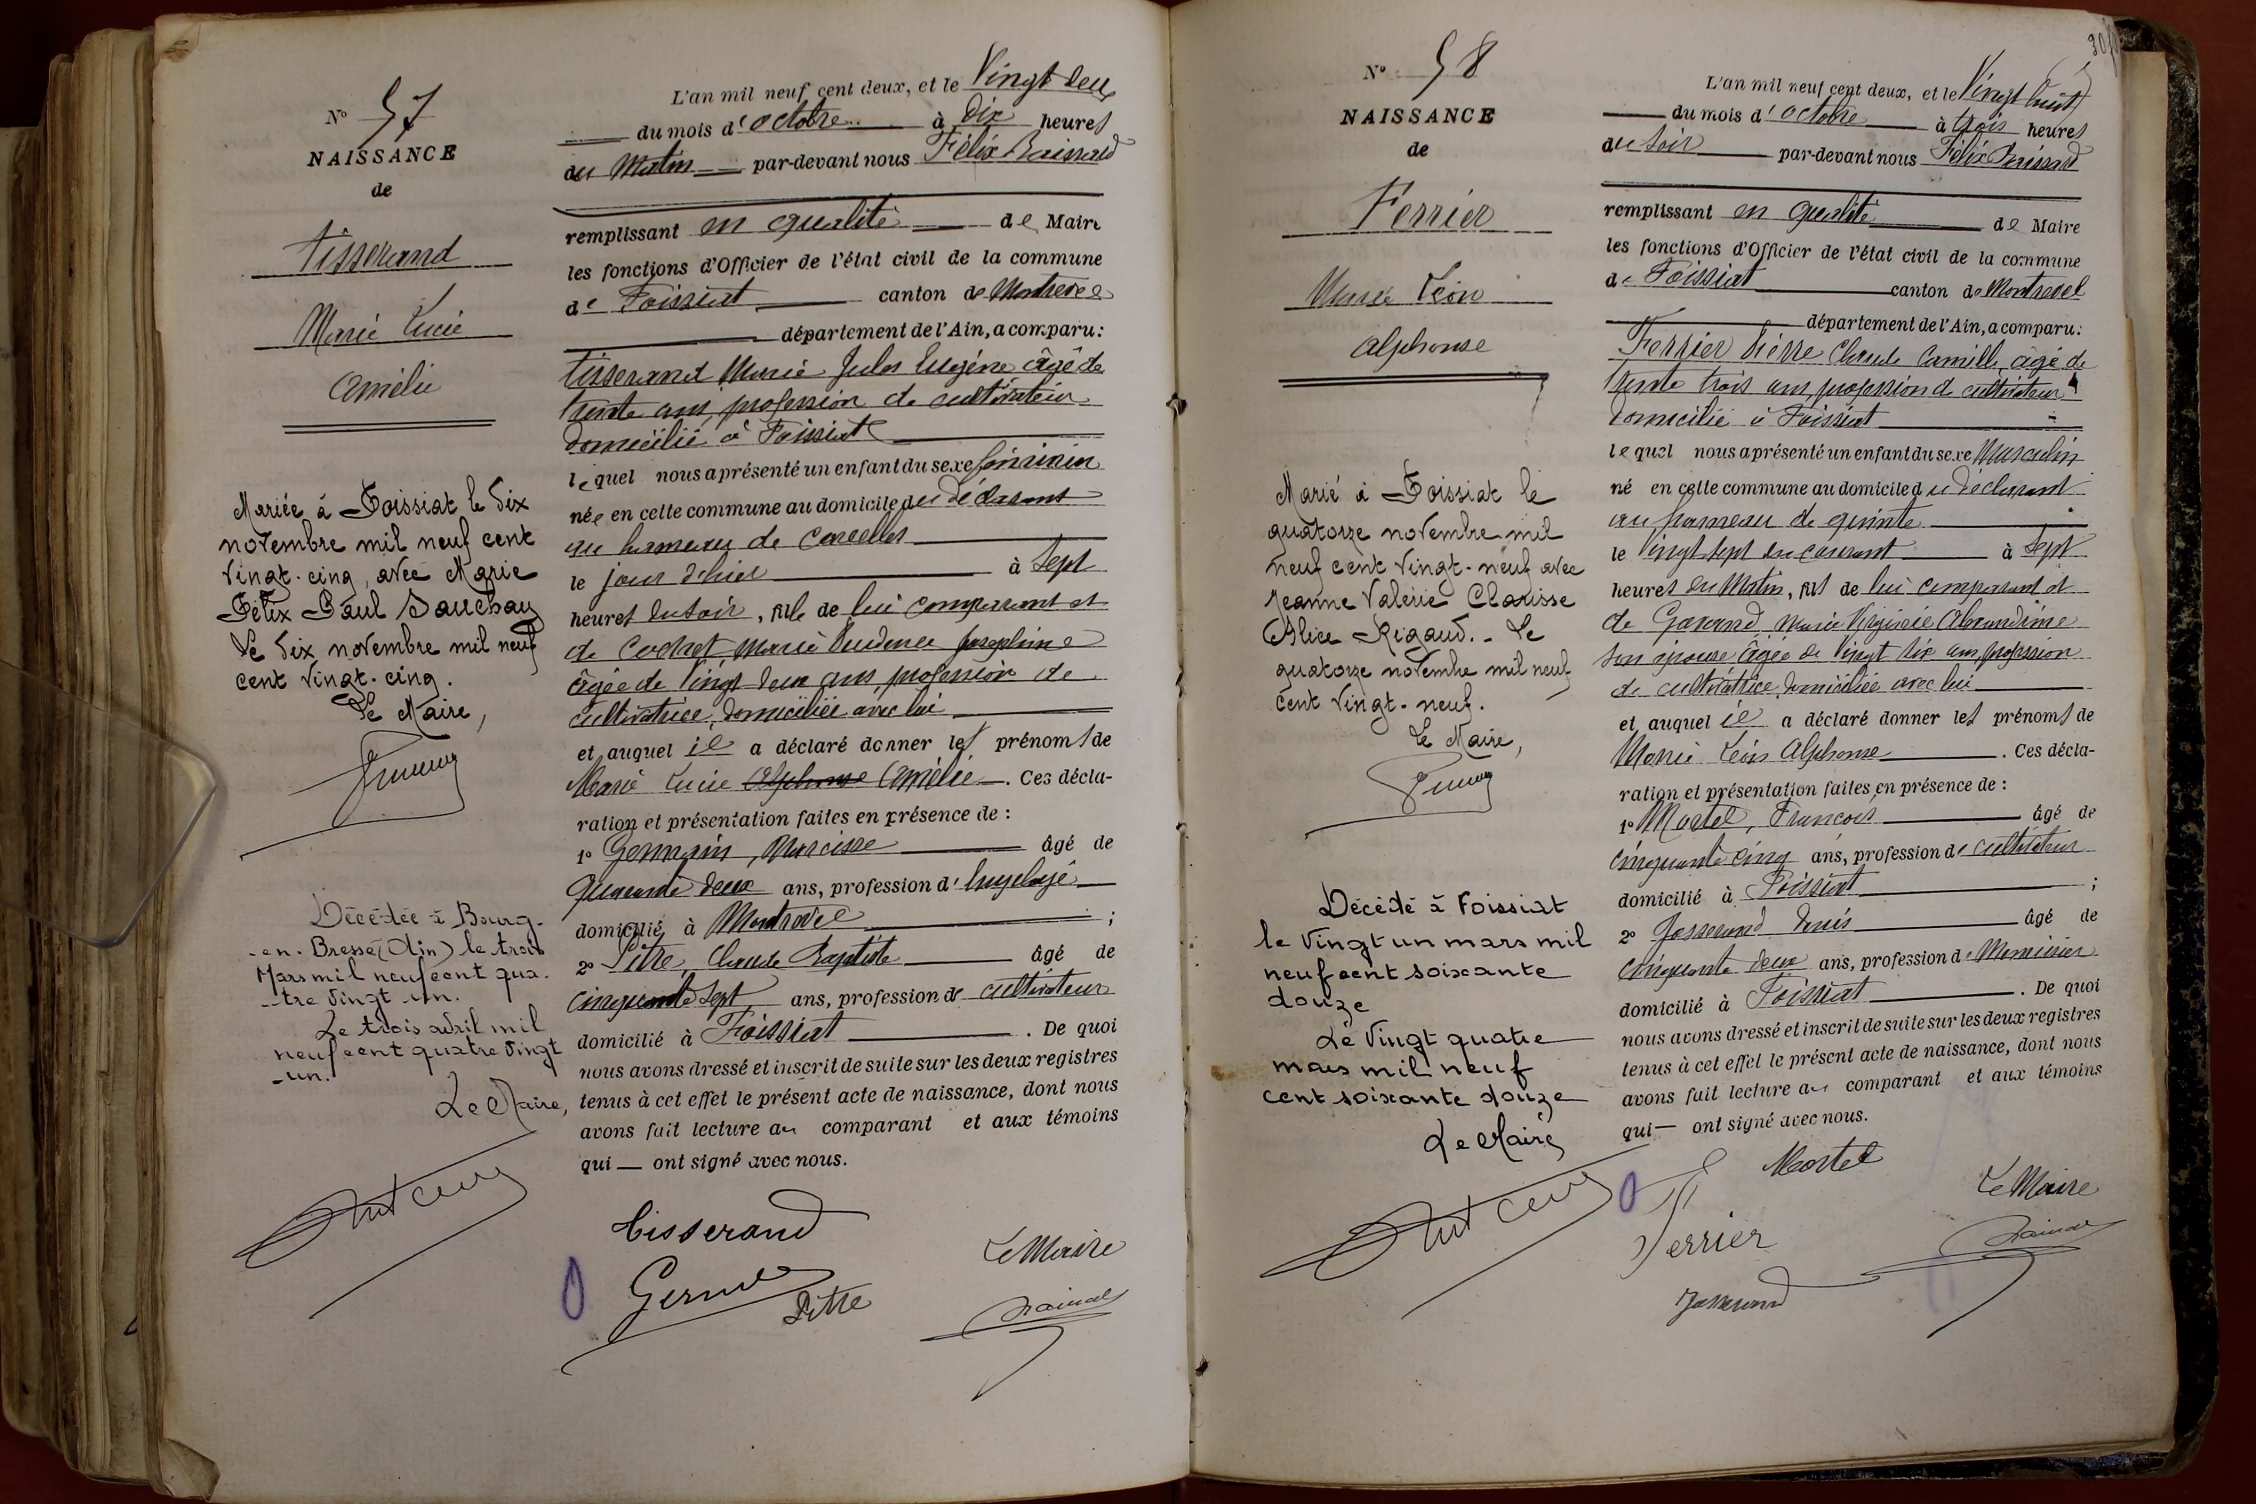 N° 57
NAISSANCE
de
Tisserand
Marie Lucie
Amélie
Mariée à Foissiat le dix
novembre mil neuf cent
vingt-cinq, avec Marie
Félix Paul Sauchay
Le dix novembre mil neuf
cent vingt-cinq.
Le Maire,
Décédée à Bourg-
-en-Bresse (Ain) le trois
Mars mil neuf cent qua-
-tre vingt un.
Le trois avril mil
neuf cent quatre vingt
-un.
Le Maire,
L'an mil neuf cent deux, et le Vingt deux
du mois d'octobre à dix heures
du Matin par-devant nous Félix
remplissant en qualité de Maire
les fonctions d'Officier de l'état civil de la commune
de Foissiat canton de Montrevel
département de l'Ain, a comparu:
Tisserand Marie Jules Eugène âgé de
trente ans, profession de cultivateur
domicilié à Foissiat
lequel nous a présenté un enfant du sexe féminin
née en cette commune au domicile du déclarant
au hameau de
le jour d'hier à Sept
heures du soir, fille de lui comparant et
de Marie Prudence Joséphine
âgée de Vingt deux ans, profession de
cultivatrice, domiciliée avec lui
et auquel il a déclaré donner les prénoms de
Marie Lucie Alphonse Amélie. Ces décla-
ration et présentation faites en présence de :
1° Germain, Narcisse âgé de
quarante deux ans, profession d'
domicilié à Montrevel ;
2° Pitre, Claude Baptiste âgé de
cinquante sept ans, profession de cultivateur
domicilié à Foissiat. De quoi
nous avons dressé et inscrit de suite sur les deux registres
tenus à cet effet le présent acte de naissance, dont nous
avons fait lecture au comparant et aux témoins
qui — ont signé avec nous.
Tisserand
Le Maire
Pitre
N° 58
NAISSANCE
de
Ferrier
Marie Léon
Alphonse
Marié à Foissiat le
quatorze novembre mil
neuf cent vingt-neuf avec
Jeanne Valérie Clarisse
Alice Rigaud. - Le
quatorze novembre mil neuf
cent vingt-neuf.
Le Maire,
Décédé à Foissiat
le vingt un mars mil
neuf cent soixante
douze
Le Vingt quatre
mars mil neuf
cent soixante douze
Le Maire
L'an mil neuf cent deux, et le Vingt huit
du mois d'octobre à trois heures
du soir par-devant nous Félix
remplissant en qualité de Maire
les fonctions d'Officier de l'état civil de la commune
de Foissiat canton de Montrevel
département de l'Ain, a comparu:
Ferrier Pierre Claude Camille, âgé de
trente trois ans, profession de cultivateur
domicilié à Foissiat
lequel nous a présenté un enfant du sexe Masculin
né en cette commune au domicile du déclarant
au hameau de quinte
le Vingt sept du courant à Sept
heures du Matin, fils de lui comparant et
de Marie Virginie
son épouse âgée de Vingt six ans, profession
de cultivatrice, domiciliée avec lui
et auquel il a déclaré donner les prénoms de
Marie Léon Alphonse. Ces décla-
ration et présentation faites en présence de :
1° Martel, François âgé de
cinquante cinq ans, profession de cultivateur
domicilié à Foissiat ;
2° Josserand Denis âgé de
cinquante deux ans, profession de Menuisier
domicilié à Foissiat. De quoi
nous avons dressé et inscrit de suite sur les deux registres
tenus à cet effet le présent acte de naissance, dont nous
avons fait lecture au comparant et aux témoins
qui — ont signé avec nous.
Martel
Le Maire
Ferrier
Josserand